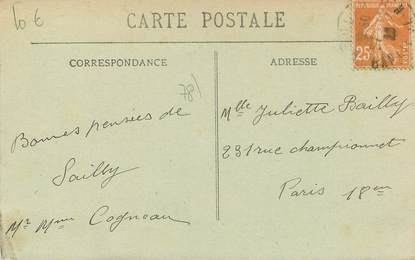 10 €
CARTE POSTALE
CORRESPONDANCE
ADRESSE
25
78
Bonnes pensées de
Sailly
Mr Mme Cogneau
Mlle Juliette Bailly
231 rue championnet
Paris 18em